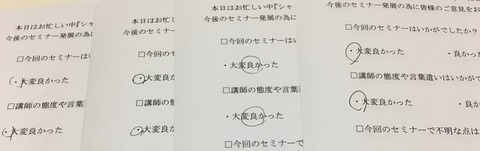 本日はお忙しい中『シャ
今後のセミナー発展の為に
□今回のセミナーは
・大変良かった
□講師の態度や言葉
・大変良かった
本日はお忙し
今後のセミナー発
□今回のセミ
・大変良かった
□講師の態
・大変良かった
本日はお忙しい中『シ
今後のセミナー発展の為に
□今回のセミナーはい
・大変良かった
□講師の態度や言葉
・大変良かった
□今回のセミナーで
今後のセミナー発展の為に皆様のご意見をお
□今回のセミナーはいかがでしたか?
・大変良かった ・良か
□講師の態度や言葉遣いはいかがで
・大変良かった ・良かっ
□今回のセミナーで不明な点は